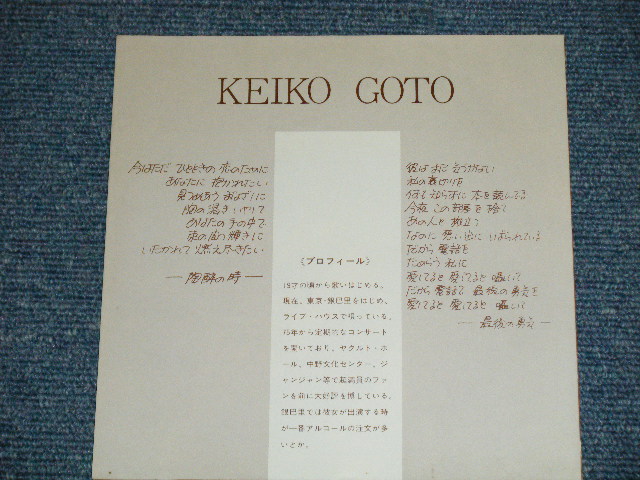 KEIKO GOTO
今はただ ひとときの 恋のために
あなたに 抱かれたい
見つめあう まなざしに
胸の
あなたの 手の中で
いだかれて 燃え尽きたい
― 陶酔の時 ―
《プロフィール》
19才の頃から歌いはじめる。
現在、東京・銀巴里をはじめ、
ライブ・ハウスで唄っている。
75年から定期的なコンサート
を開いており、ヤクルト・ホ
ール、中野文化センター、ジ
ャンジャン等で超満員のファ
ンを前に大好評を博している。
銀巴里では彼女が出演する時
が一番アルコールの注文が多
いとか。
彼は まだ 気づかない
私の裏切りを
何も知らずに 本を読んでる
今夜 この部屋を 捨て
あの人と 旅立つ
なのに 思い出に しばられている
だから 電話を
だから 私に
愛してると 愛してると 囁いて
だから 電話を 最後の勇気を
愛してると 愛してると 囁いて
― 最後の勇気 ―